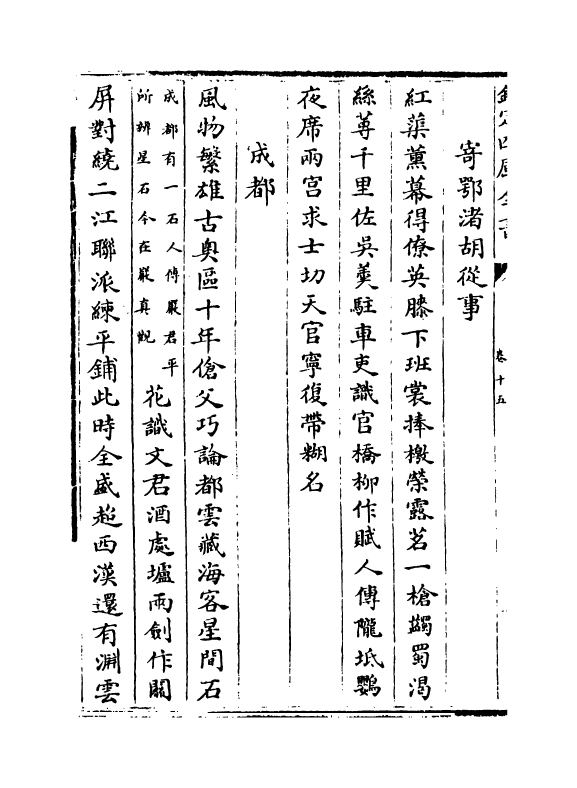 欽定四庫全書
卷十五
寄鄂渚胡從事
紅蕖薰幕得僚英膝下班裳捧檄榮露茗一槍蠲蜀渴
絲蓴千里佐吳羮駐車吏識官橋柳作賦人傳隴坻鸚
夜席兩宫求士切天官寧復帶糊名
成都
風物繁雄古奥區十年傖父巧論都雲藏海客星間石
成都有一石人傳嚴君平
所辨星石今在嚴真觀
花識文君酒處壚兩劍作關
屏對繞二江聯派練平鋪此時全盛超西漢還有淵雲